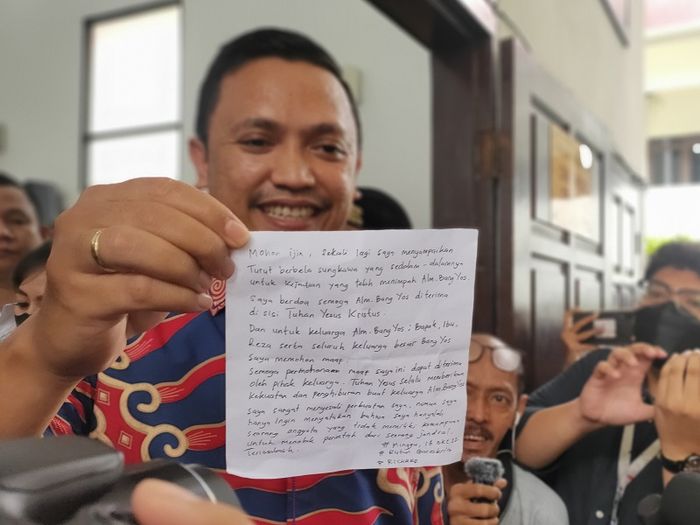 Mohon ijin, sekali lagi saya menyampaikan
Turut berbela sungkawa yang sedalam-dalamnya
untuk kejadian yang telah menimpah Alm. Bang Yos.
Saya berdoa semoga Alm. Bang Yos diterima
di sisi Tuhan Yesus Kristus.
Dan untuk keluarga Alm. Bang Yos; Bapak, Ibu,
Reza serta seluruh keluarga besar Bang Yos
Saya memohon maap.
Semoga permohonan maap saya ini dapat diterima
oleh pihak keluarga. Tuhan Yesus selalu memberikan
kekuatan dan penghiburan buat keluarga Alm. Bang Yos
Saya sangat menyesali perbuatan saya, namun saya
hanya ingin menyatakan bahwa saya hanyalah
seorang anggota yang tidak memiliki kemampuan
untuk menolak perintah dari seorang Jendral.
Terimakasih.
# Rutan
# Richard